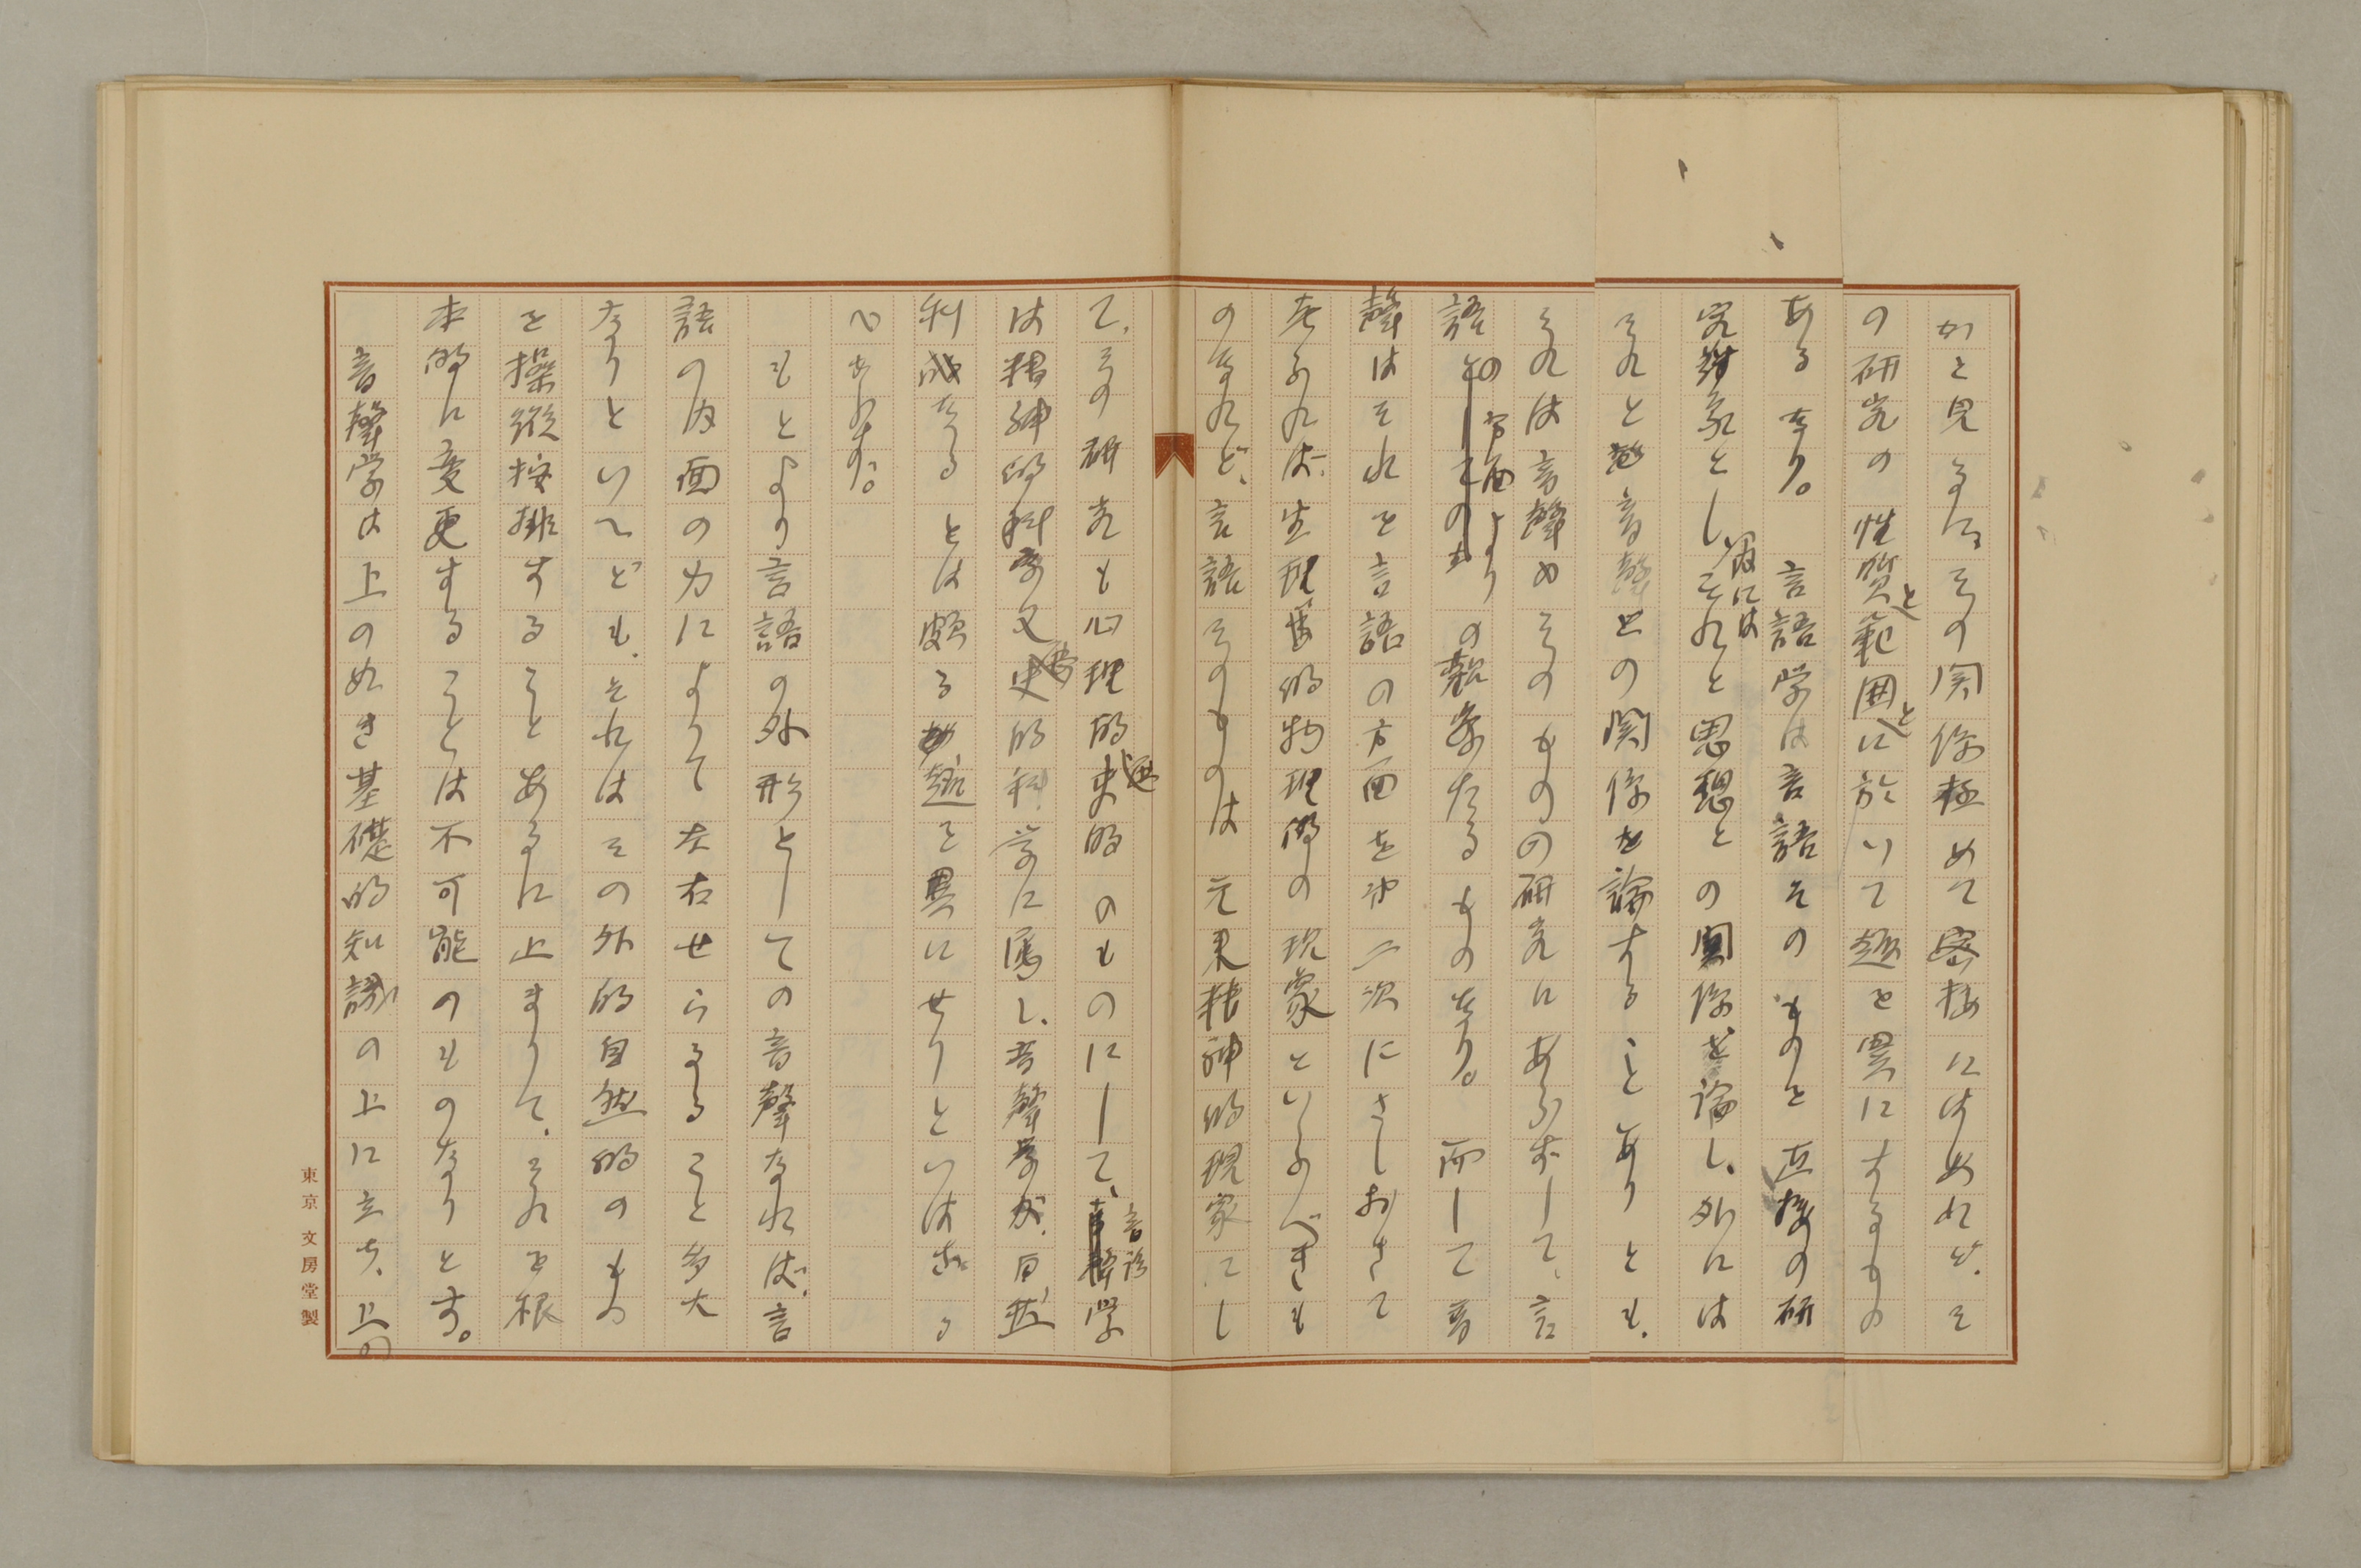 かと見るに、その関係極めて密接にはあれど、そ
の研究の性質と範囲とに於いて趣を異にするもの
あるなり。言語学は言語そのものを直接の研
究対象とし、内にはそれと思想との関係を論し、外には
それと音聲との関係を論することありとも、
それは音聲のそのものの研究にあらずして、言
語の方面よりの観察たるものなり。而して音
聲はそれを言語の方面を第二次にさしおきて
考ふれば、生理的物理的の現象といふべきも
のなれど、言語そのものは元来精神的現象にし
て、その研究も心理的歴史的のものにして、言語学
は精神的科学又歴史的科学に属し、音聲学が、自然
科學たるとは頗る趣を異にせりといはざる
べからず。
もとより言語の外形としての音聲なれば、言
語の内面の力によりて左右せらるること多大
なりといへども、それはその外的自然的のもの
を操縦按排することあるに止まりて、それを根
本的に変更することは不可能のものなりとす。
音聲学は上の如き基礎的知識の上に立ち、上の
東京文房堂製